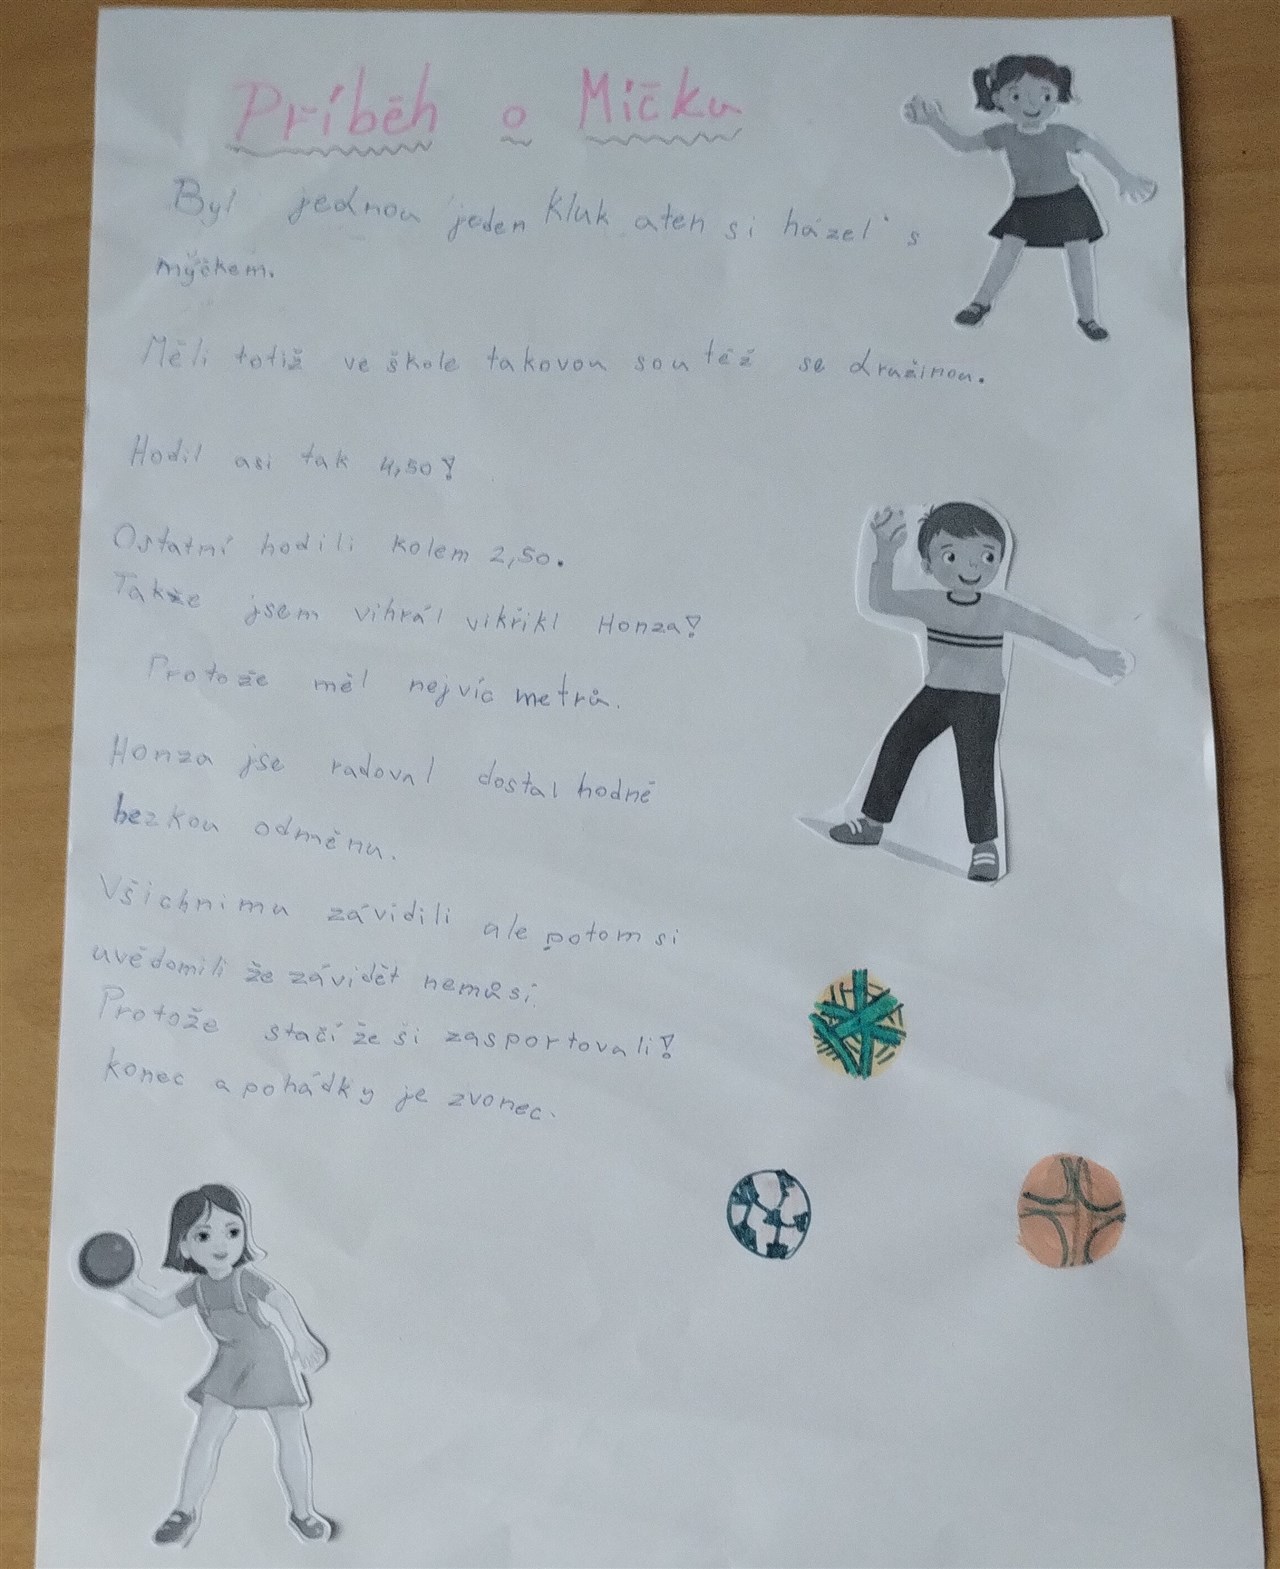 Príběh o Míčku
Byl jednou jeden kluk aten si házel s
mýčkem.
Měli totiž ve škole takovou soutěž se družinou.
Hodil asi tak 4,50!
Ostatní hodili kolem 2,50.
Takže jsem vihrál vikřikl Honza!
Protože měl nejvíc metrů.
Honza jse radoval dostal hodně
hezkou odměnu.
Všichnimu závidili ale potom si
uvědomili že závidět nemůsí.
Protože stačí že ši zasportovali!
konec a pohádky je zvonec.